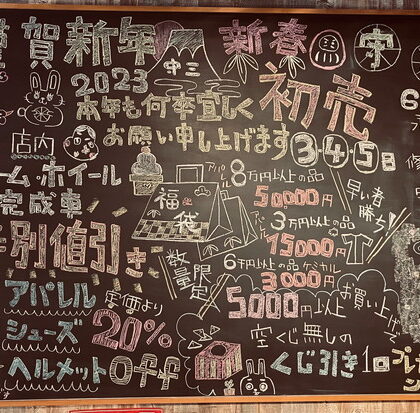 謹賀新年
2023
本年も何卒宜しく
お願い申し上げます
新春
初売
3・4・5日
店内
ーム・ホイール
完成車
特別値引き
アパレル
シューズ
ヘルメット
定価より
20%
OFF
福袋
数量限定
アパレル
8万円以上の品
50000円
3万円以上の品
15000円
6千円以上の品ケミカル
3000円
早い者勝ち
5000円以上
お買い上げ
空くじ無しの
くじ引き1回
プレ